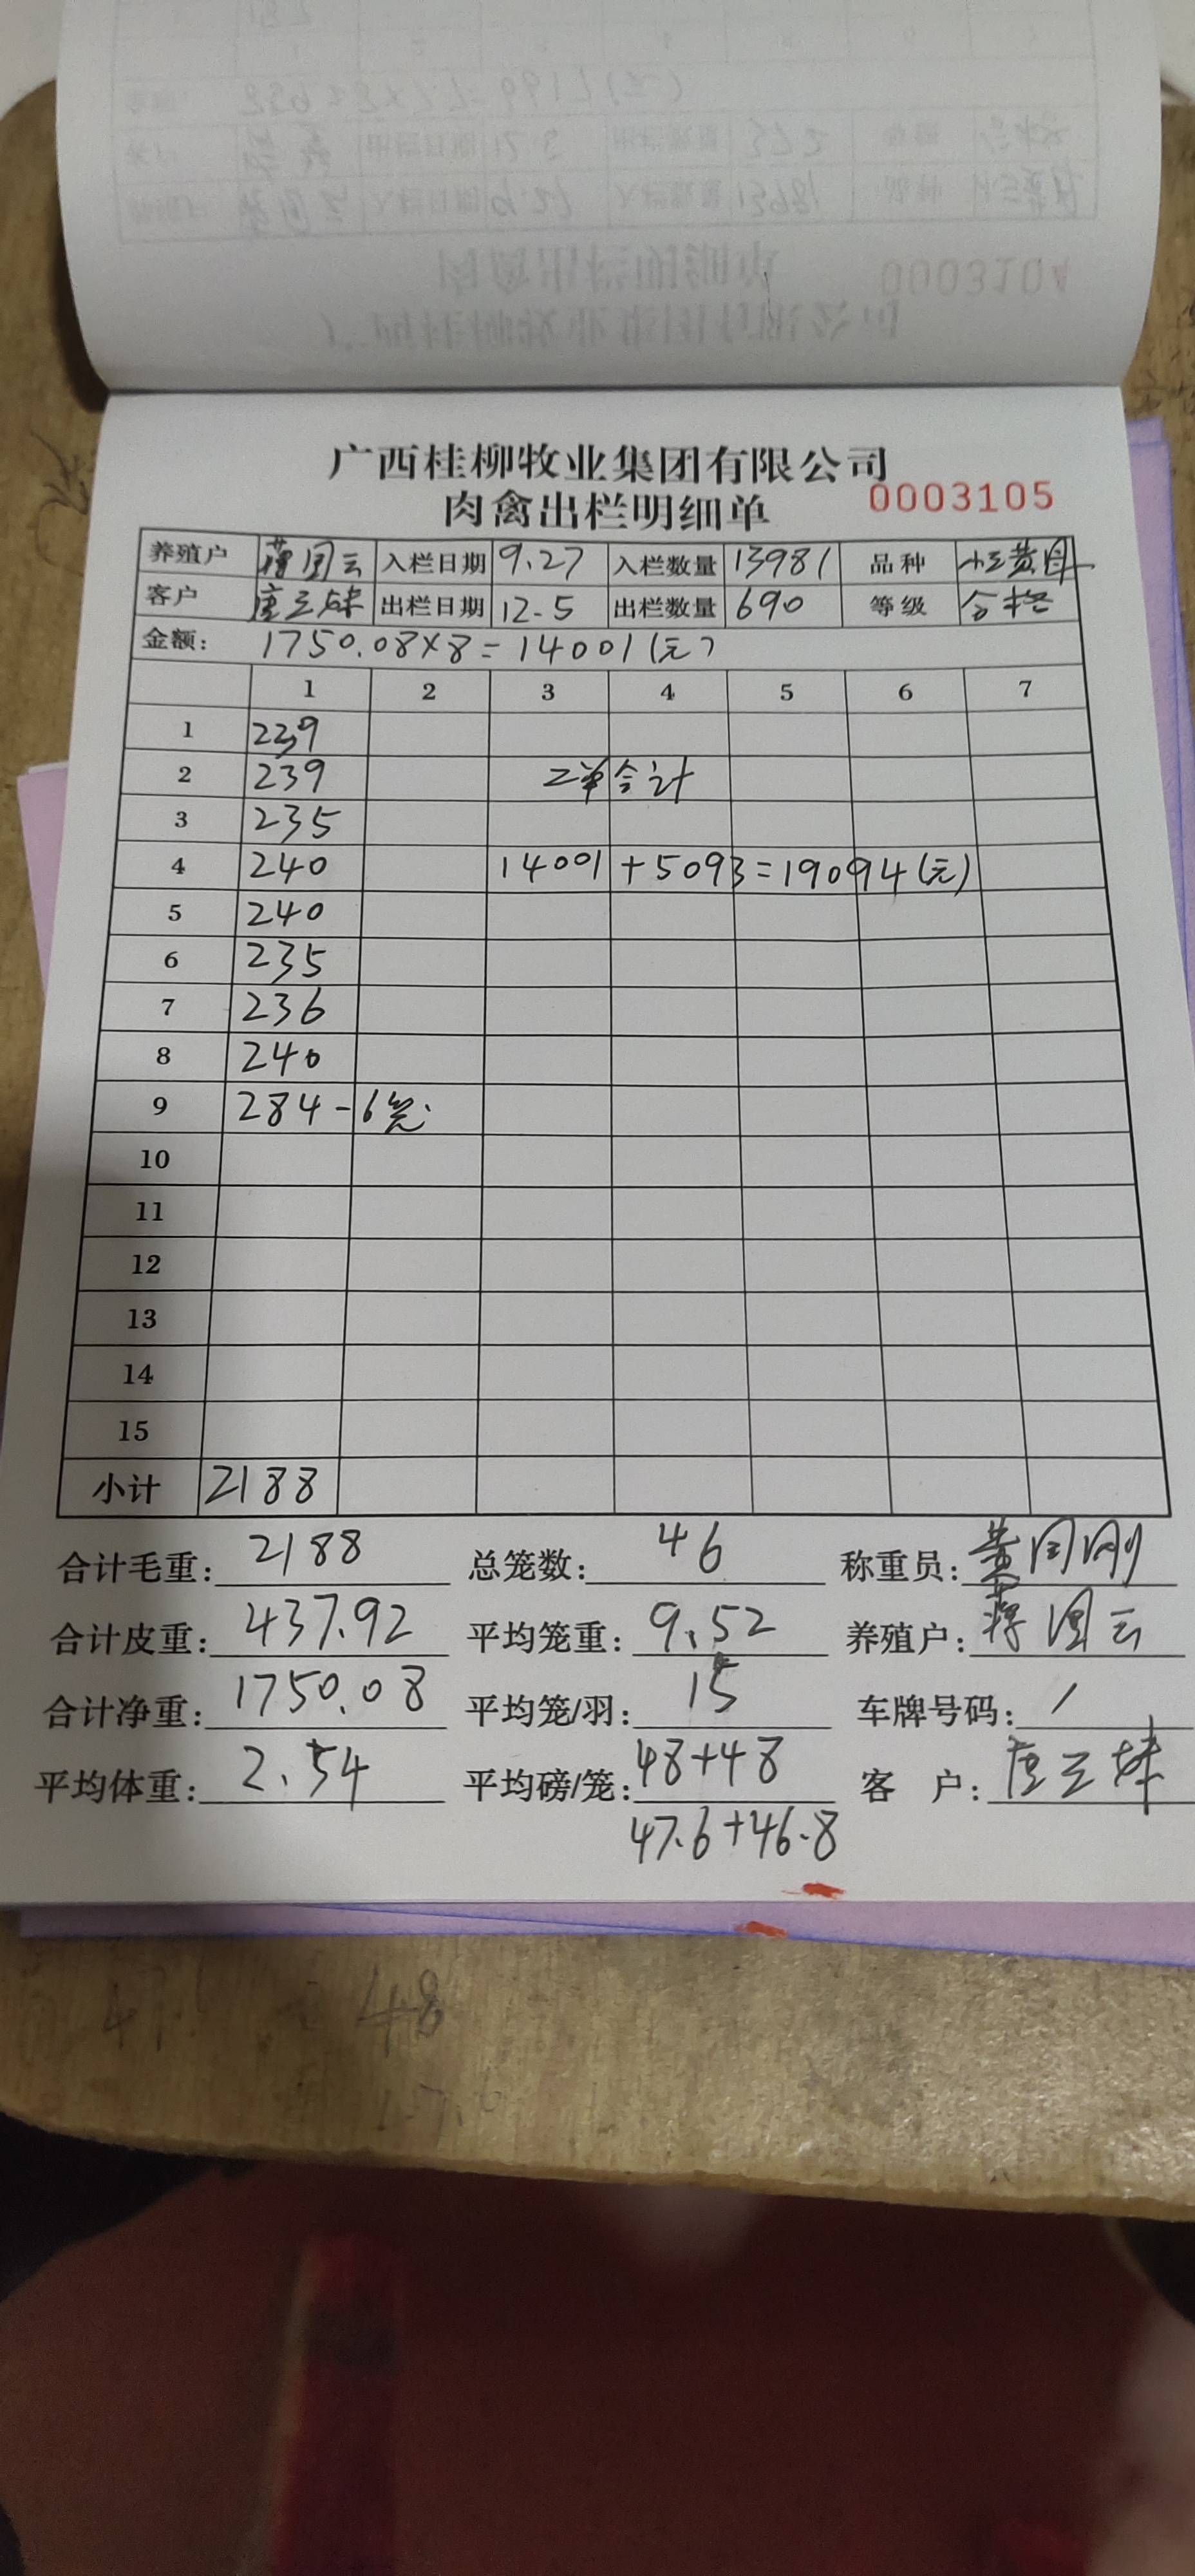 广西桂柳牧业集团有限公司
肉禽出栏明细单 0003105
养殖户 蒋国云 入栏日期 9.27 入栏数量 13981 品种
客户 唐三妹 出栏日期 12.5 出栏数量 690 等级 合格
金额: 1750.08×8=14001(元)
1 2 3 4 5 6 7
1 239
2 239 二单合计
3 235
4 240 14001+5093=19094(元)
5 240
6 235
7 236
8 240
9 284-6笼.
10
11
12
13
14
15
小计 2188
合计毛重: 2188 总笼数: 46 称重员: 黄国刚
合计皮重: 437.92 平均笼重: 9.52 养殖户: 蒋国云
合计净重: 1750.08 平均笼/羽: 15 车牌号码: /
平均体重: 2.54 平均磅/笼: 48+48 客 户: 唐三妹
47.6+46.8
48